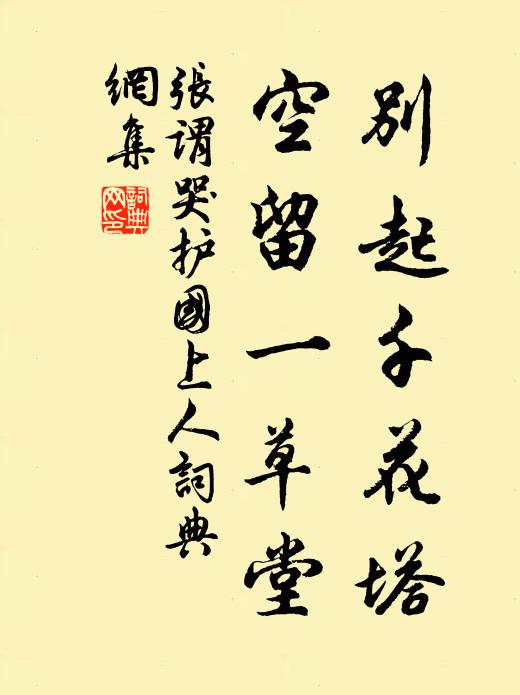 別起千花塔
空留一草堂
張謂哭护國上人詞典
網集
詞典
网印